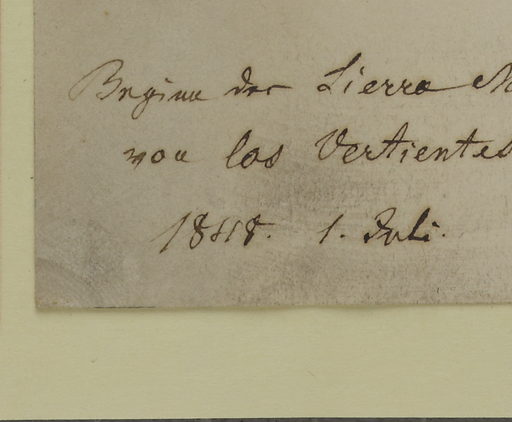 Beginn der Sierra M
von los Vertientes
1848. 1. Juli.